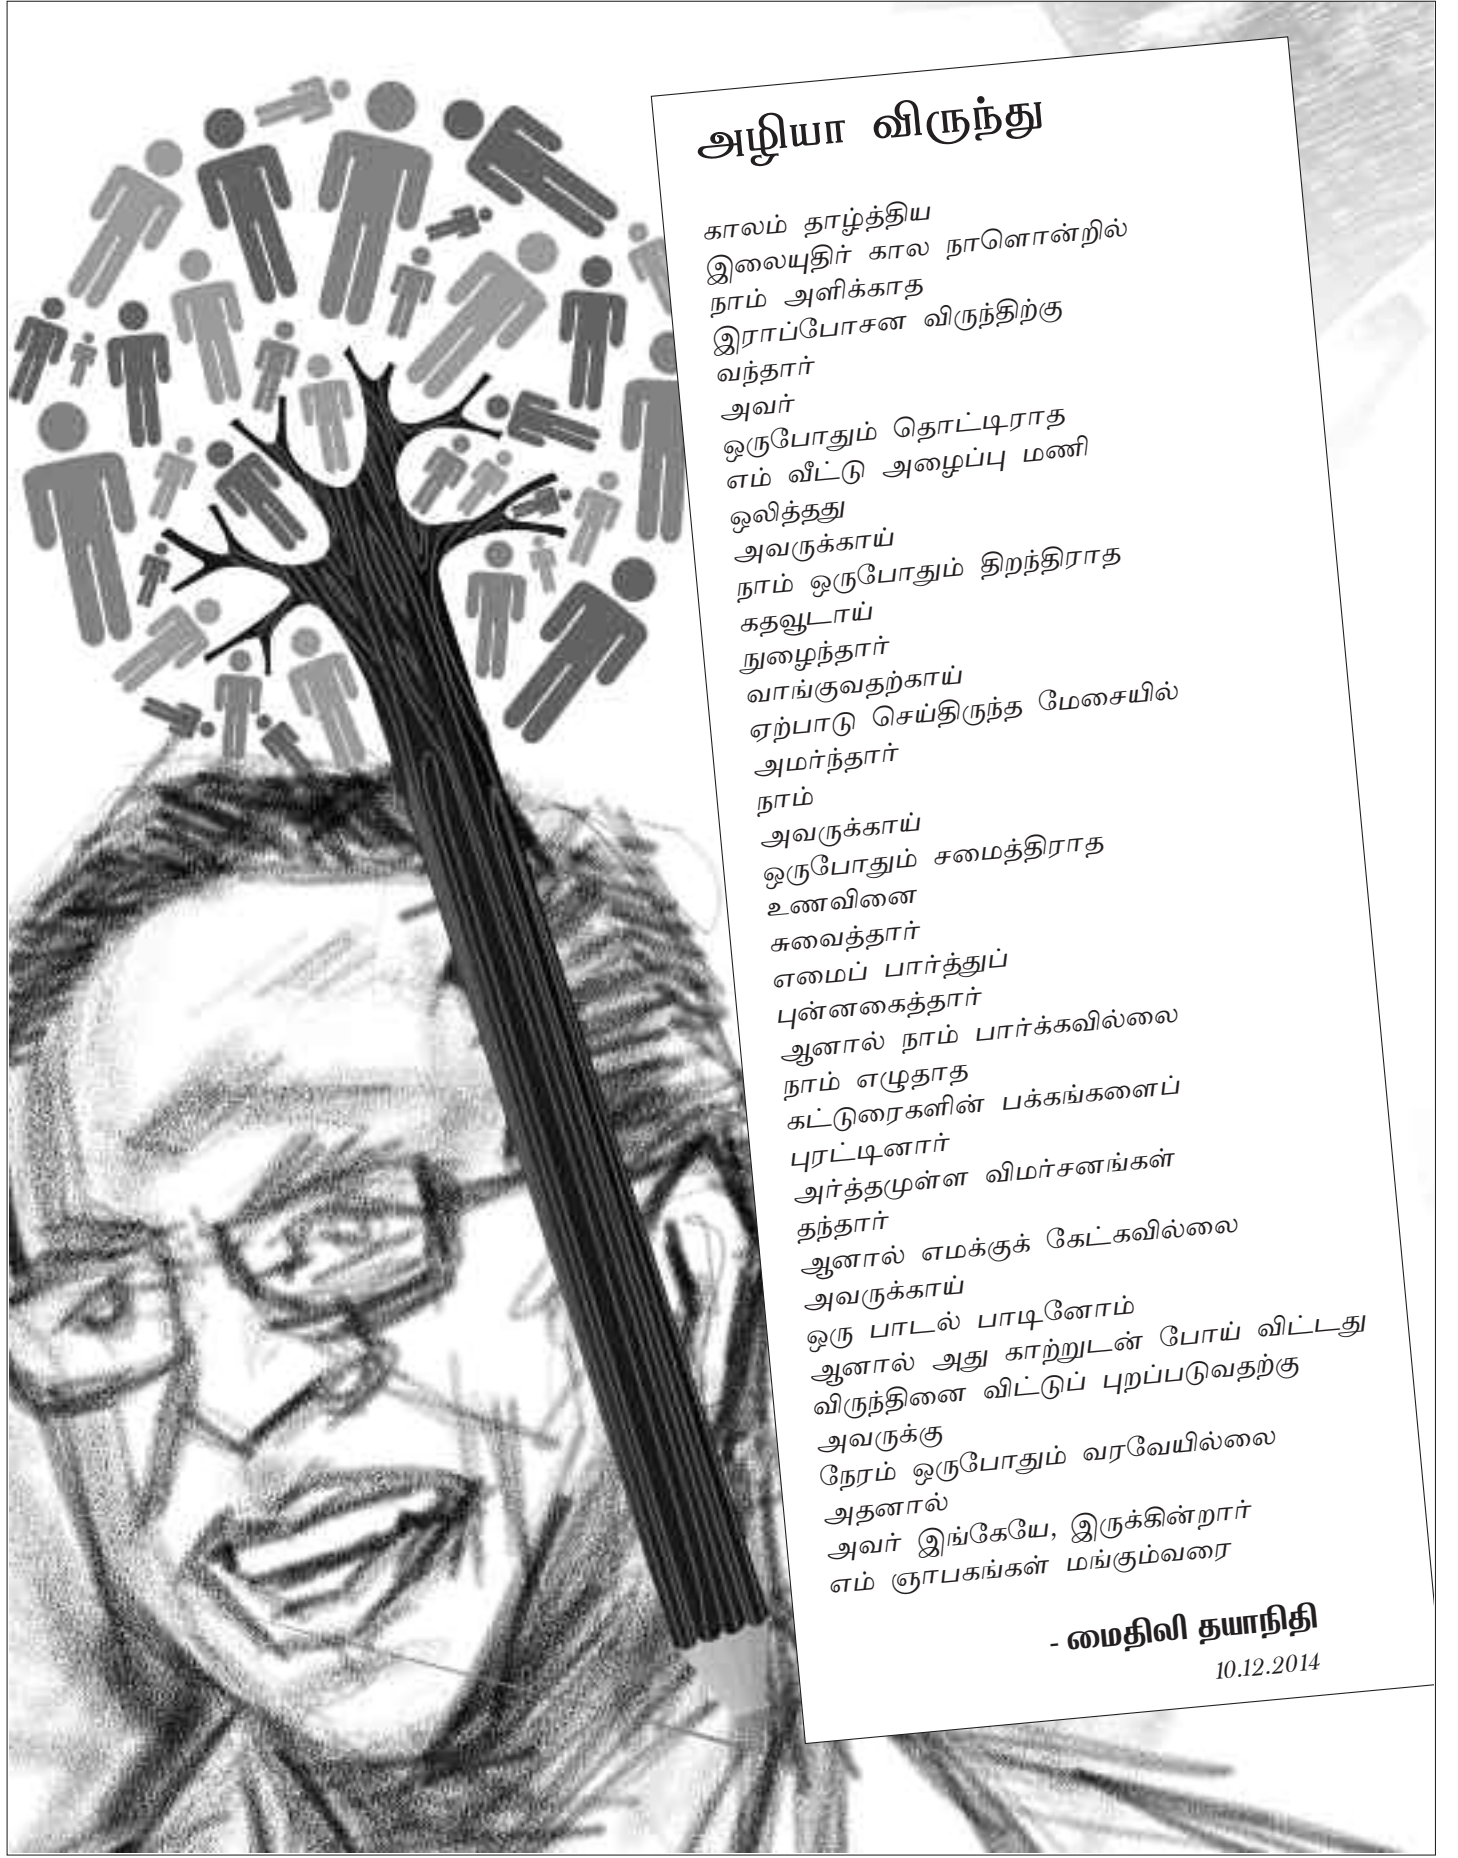 அழியா விருந்து
காலம் தாழ்த்திய
இலையுதிர் கால நாளொன்றில்
நாம் அளிக்காத
இராப்போசன விருந்திற்கு
வந்தார்
அவர்
ஒருபோதும் தொட்டிராத
எம் வீட்டு அழைப்பு மணி
ஒலித்தது
அவருக்காய்
நாம் ஒருபோதும் திறந்திராத
கதவூடாய்
நுழைந்தார்
வாங்குவதற்காய்
ஏற்பாடு செய்திருந்த மேசையில்
அமர்ந்தார்
நாம்
அவருக்காய்
ஒருபோதும் சமைத்திராத
உணவினை
சுவைத்தார்
எமைப் பார்த்துப்
புன்னகைத்தார்
ஆனால் நாம் பார்க்கவில்லை
நாம் எழுதாத
கட்டுரைகளின் பக்கங்களைப்
புரட்டினார்
அர்த்தமுள்ள விமர்சனங்கள்
தந்தார்
ஆனால் எமக்குக் கேட்கவில்லை
அவருக்காய்
ஒரு பாடல் பாடினோம்
ஆனால் அது காற்றுடன் போய் விட்டது
விருந்தினை விட்டுப் புறப்படுவதற்கு
அவருக்கு
நேரம் ஒருபோதும் வரவேயில்லை
அதனால்
அவர் இங்கேயே, இருக்கின்றார்
எம் ஞாபகங்கள் மங்கும்வரை
- மைதிலி தயாநிதி
10.12.2014